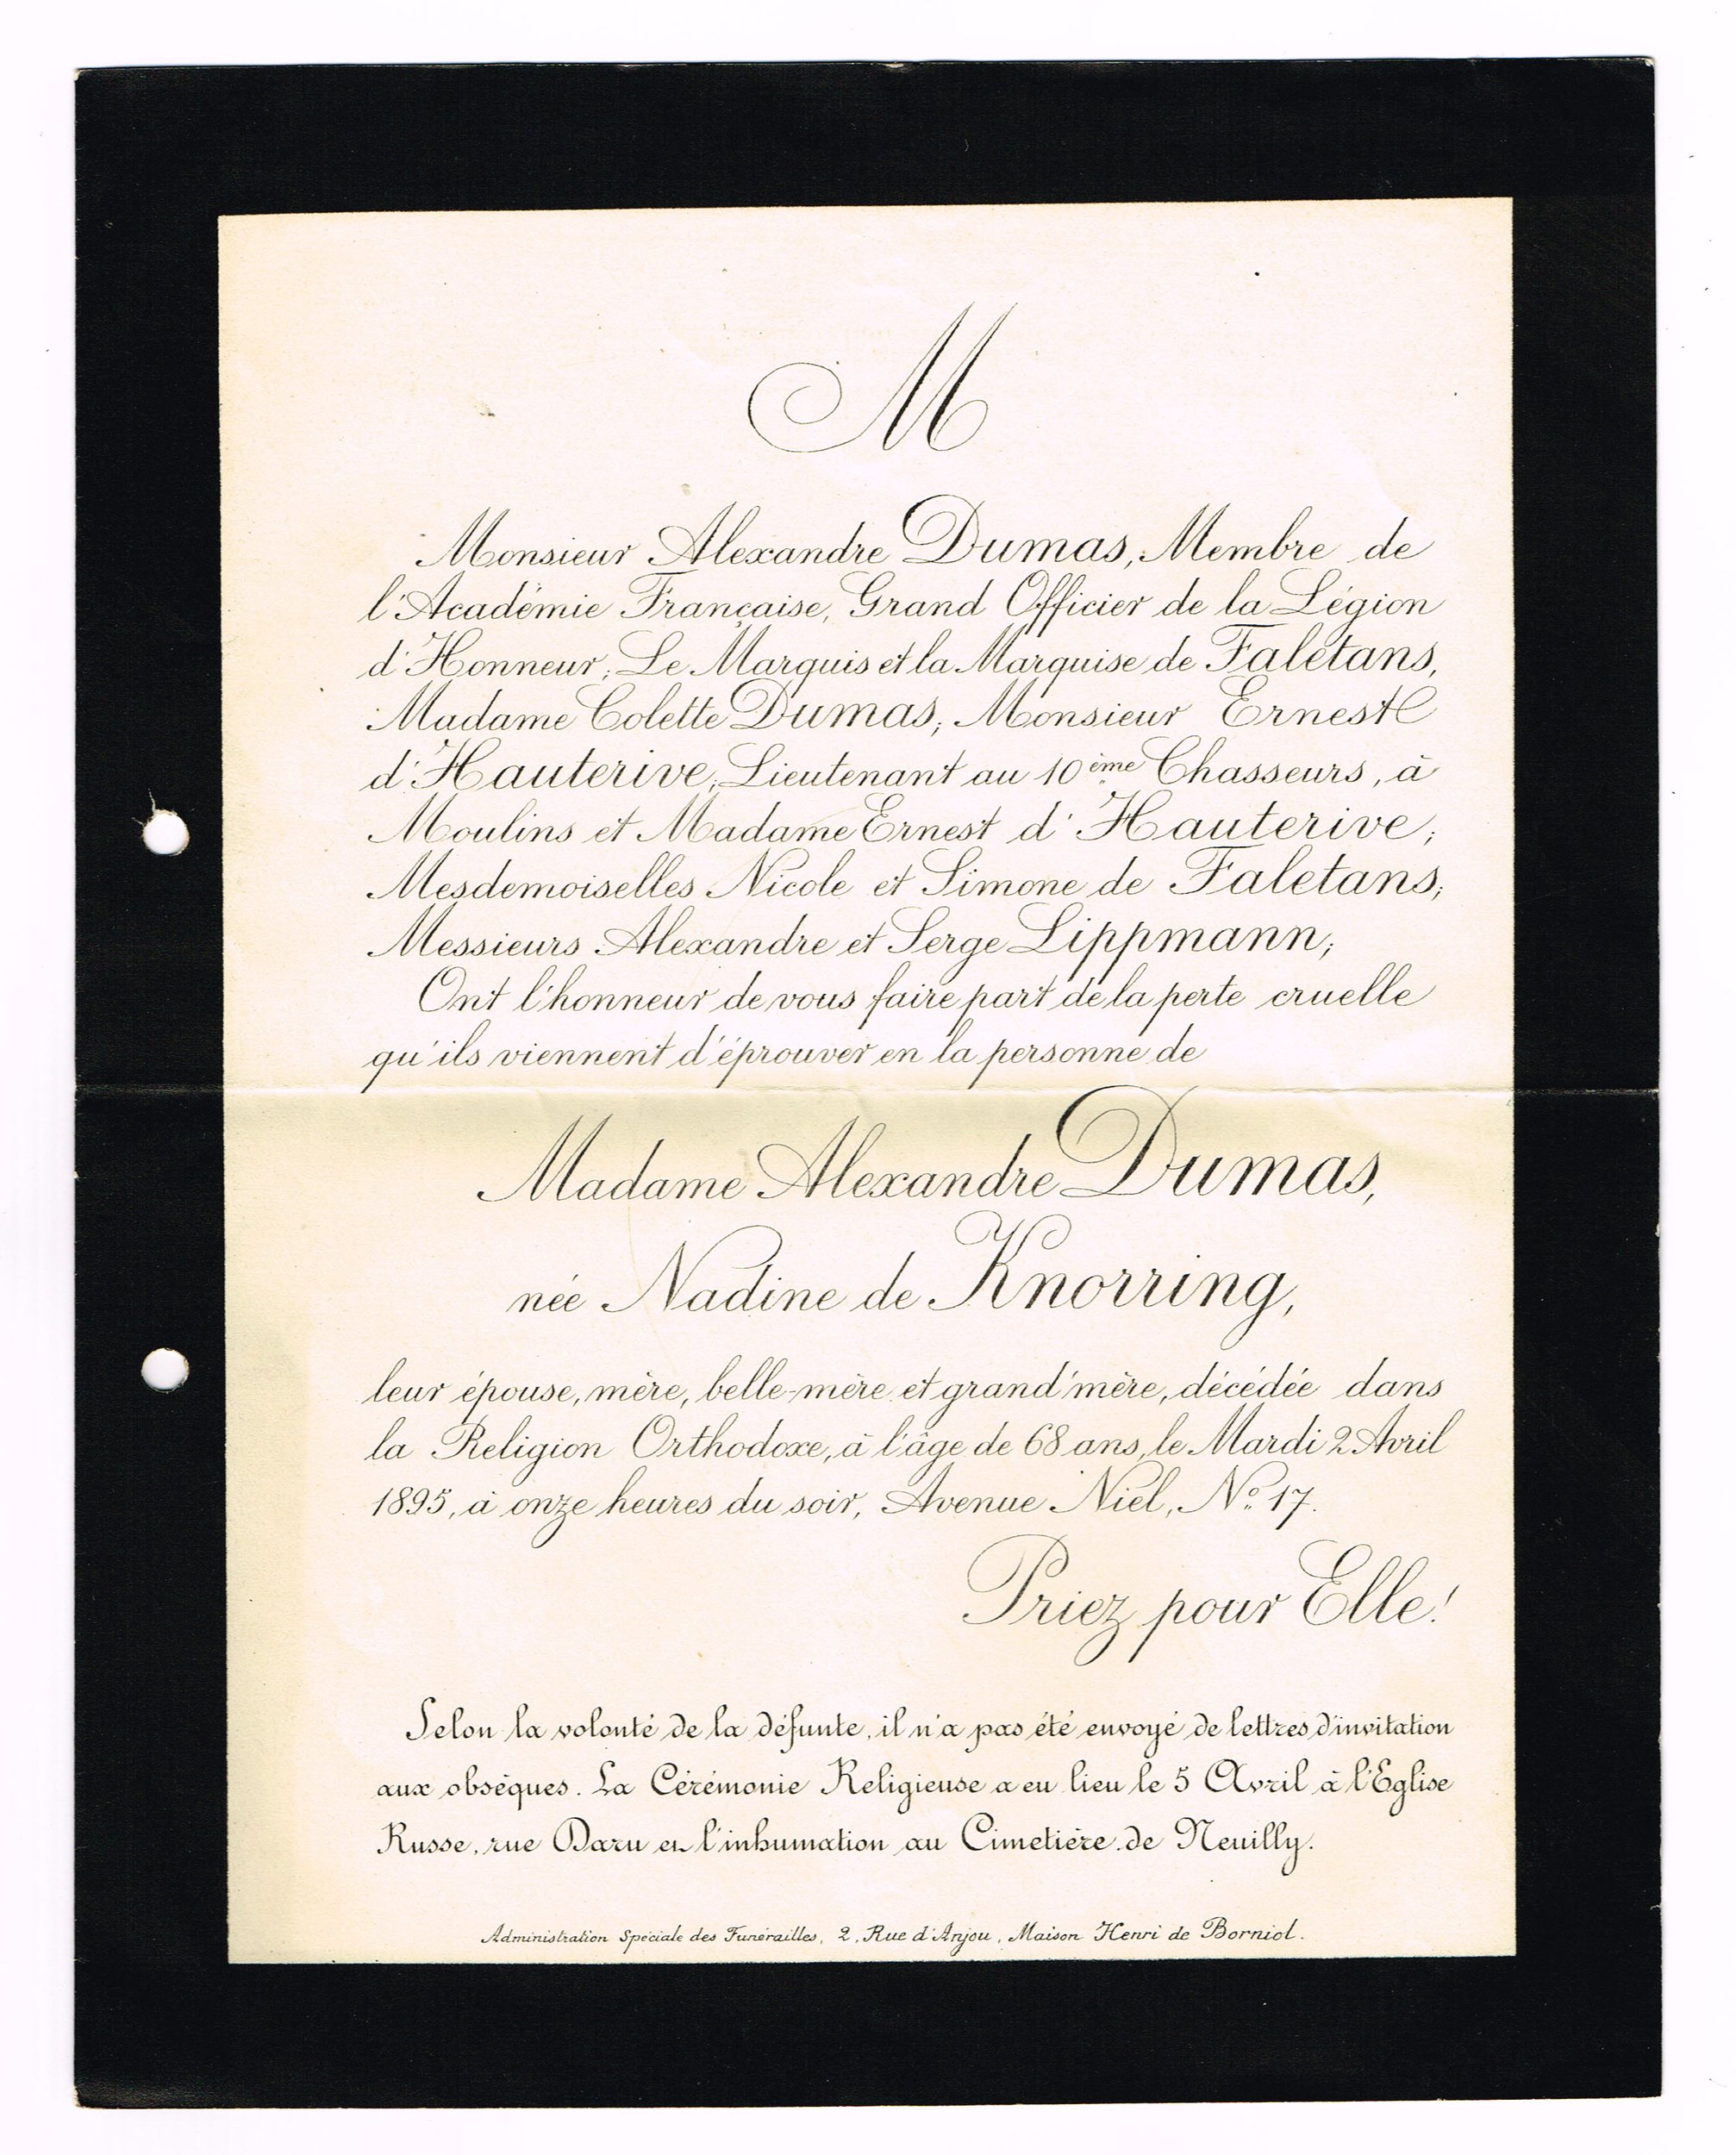 M
Monsieur Alexandre Dumas, Membre de
l'Académie Française, Grand Officier de la Légion
d'Honneur; Le Marquis et la Marquise de Faletans,
Madame Colette Dumas; Monsieur Ernest
d'Hauterive, Lieutenant au 10ème Chasseurs, à
Moulins et Madame Ernest d'Hauterive;
Mesdemoiselles Nicole et Simone de Faletans;
Messieurs Alexandre et Serge Lippmann;
Ont l'honneur de vous faire part de la perte cruelle
qu'ils viennent d'éprouver en la personne de
Madame Alexandre Dumas,
née Nadine de Knorring,
leur épouse, mère, belle-mère et grand'mère, décédée dans
la Religion Orthodoxe, à l'âge de 68 ans, le Mardi 2 Avril
1895, à onze heures du soir, Avenue Niel, No 17.
Priez pour Elle!
Selon la volonté de la défunte, il n'a pas été envoyé de lettres d'invitation
aux obsèques. La Cérémonie Religieuse a eu lieu le 5 Avril à l'Eglise
Russe, rue Daru et l'inhumation au Cimetière de Neuilly.
Administration Spéciale des Funérailles, 2, Rue d'Anjou, Maison Henri de Borniol.